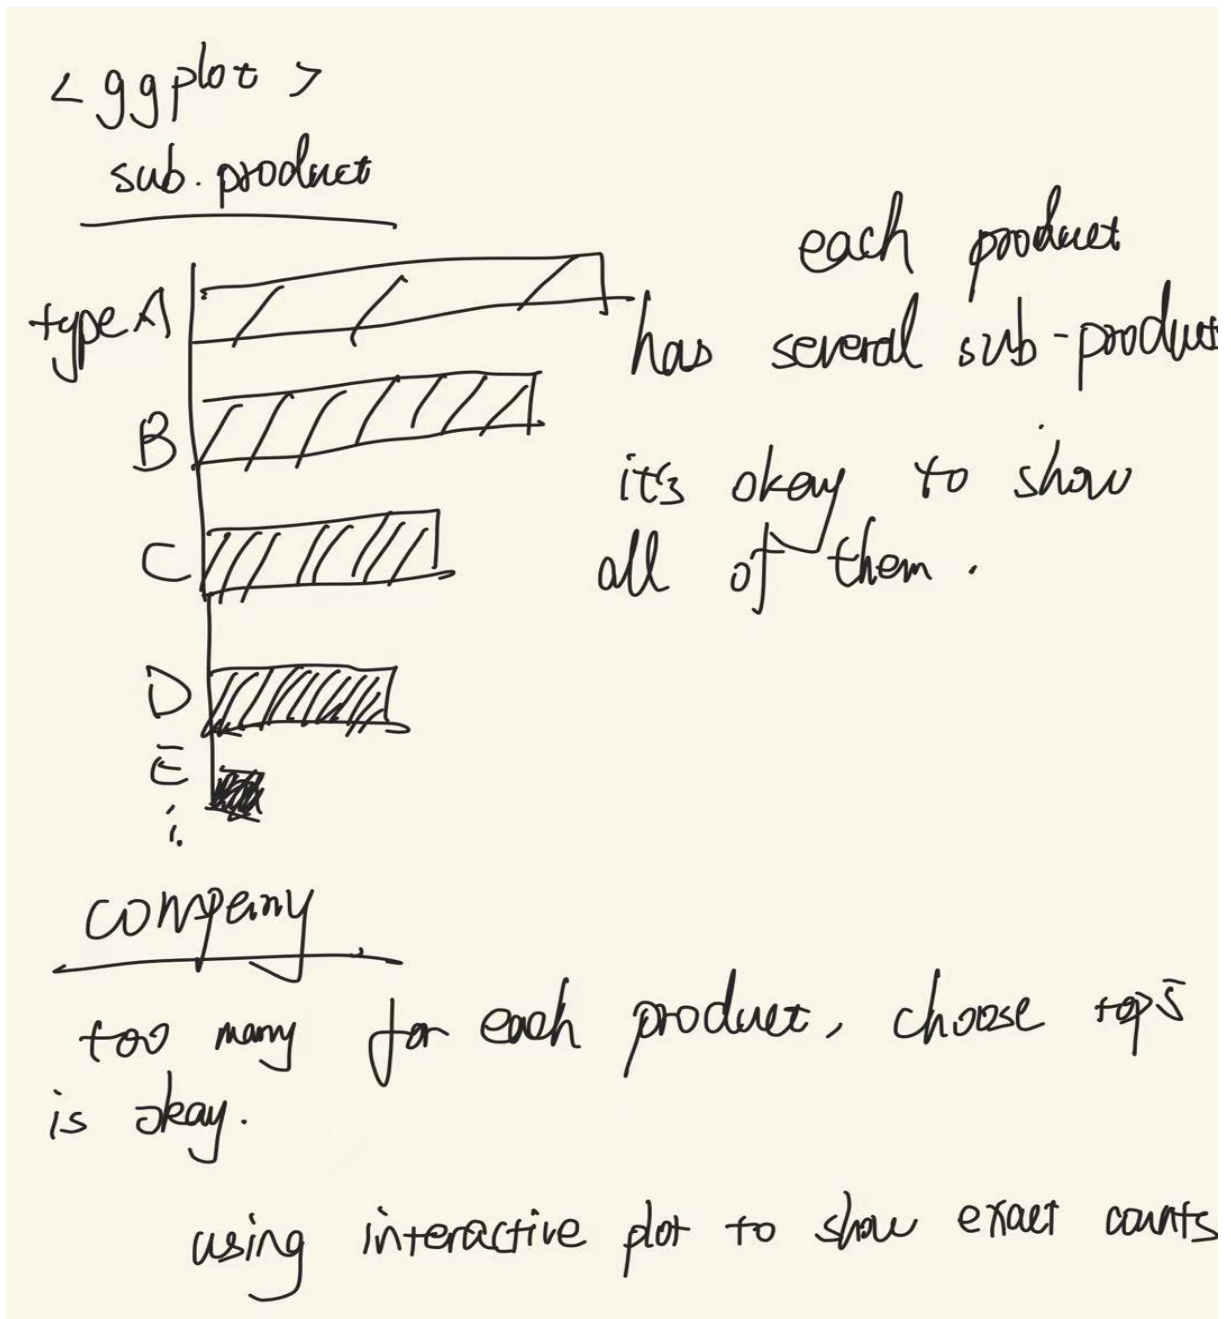 < ggplot >
sub. product
each product
type A
has several sub-product
B
it's okay to show
C
all of them.
D
E
company
too many for each product, choose top5
is okay.
using interactive plot to show exact counts